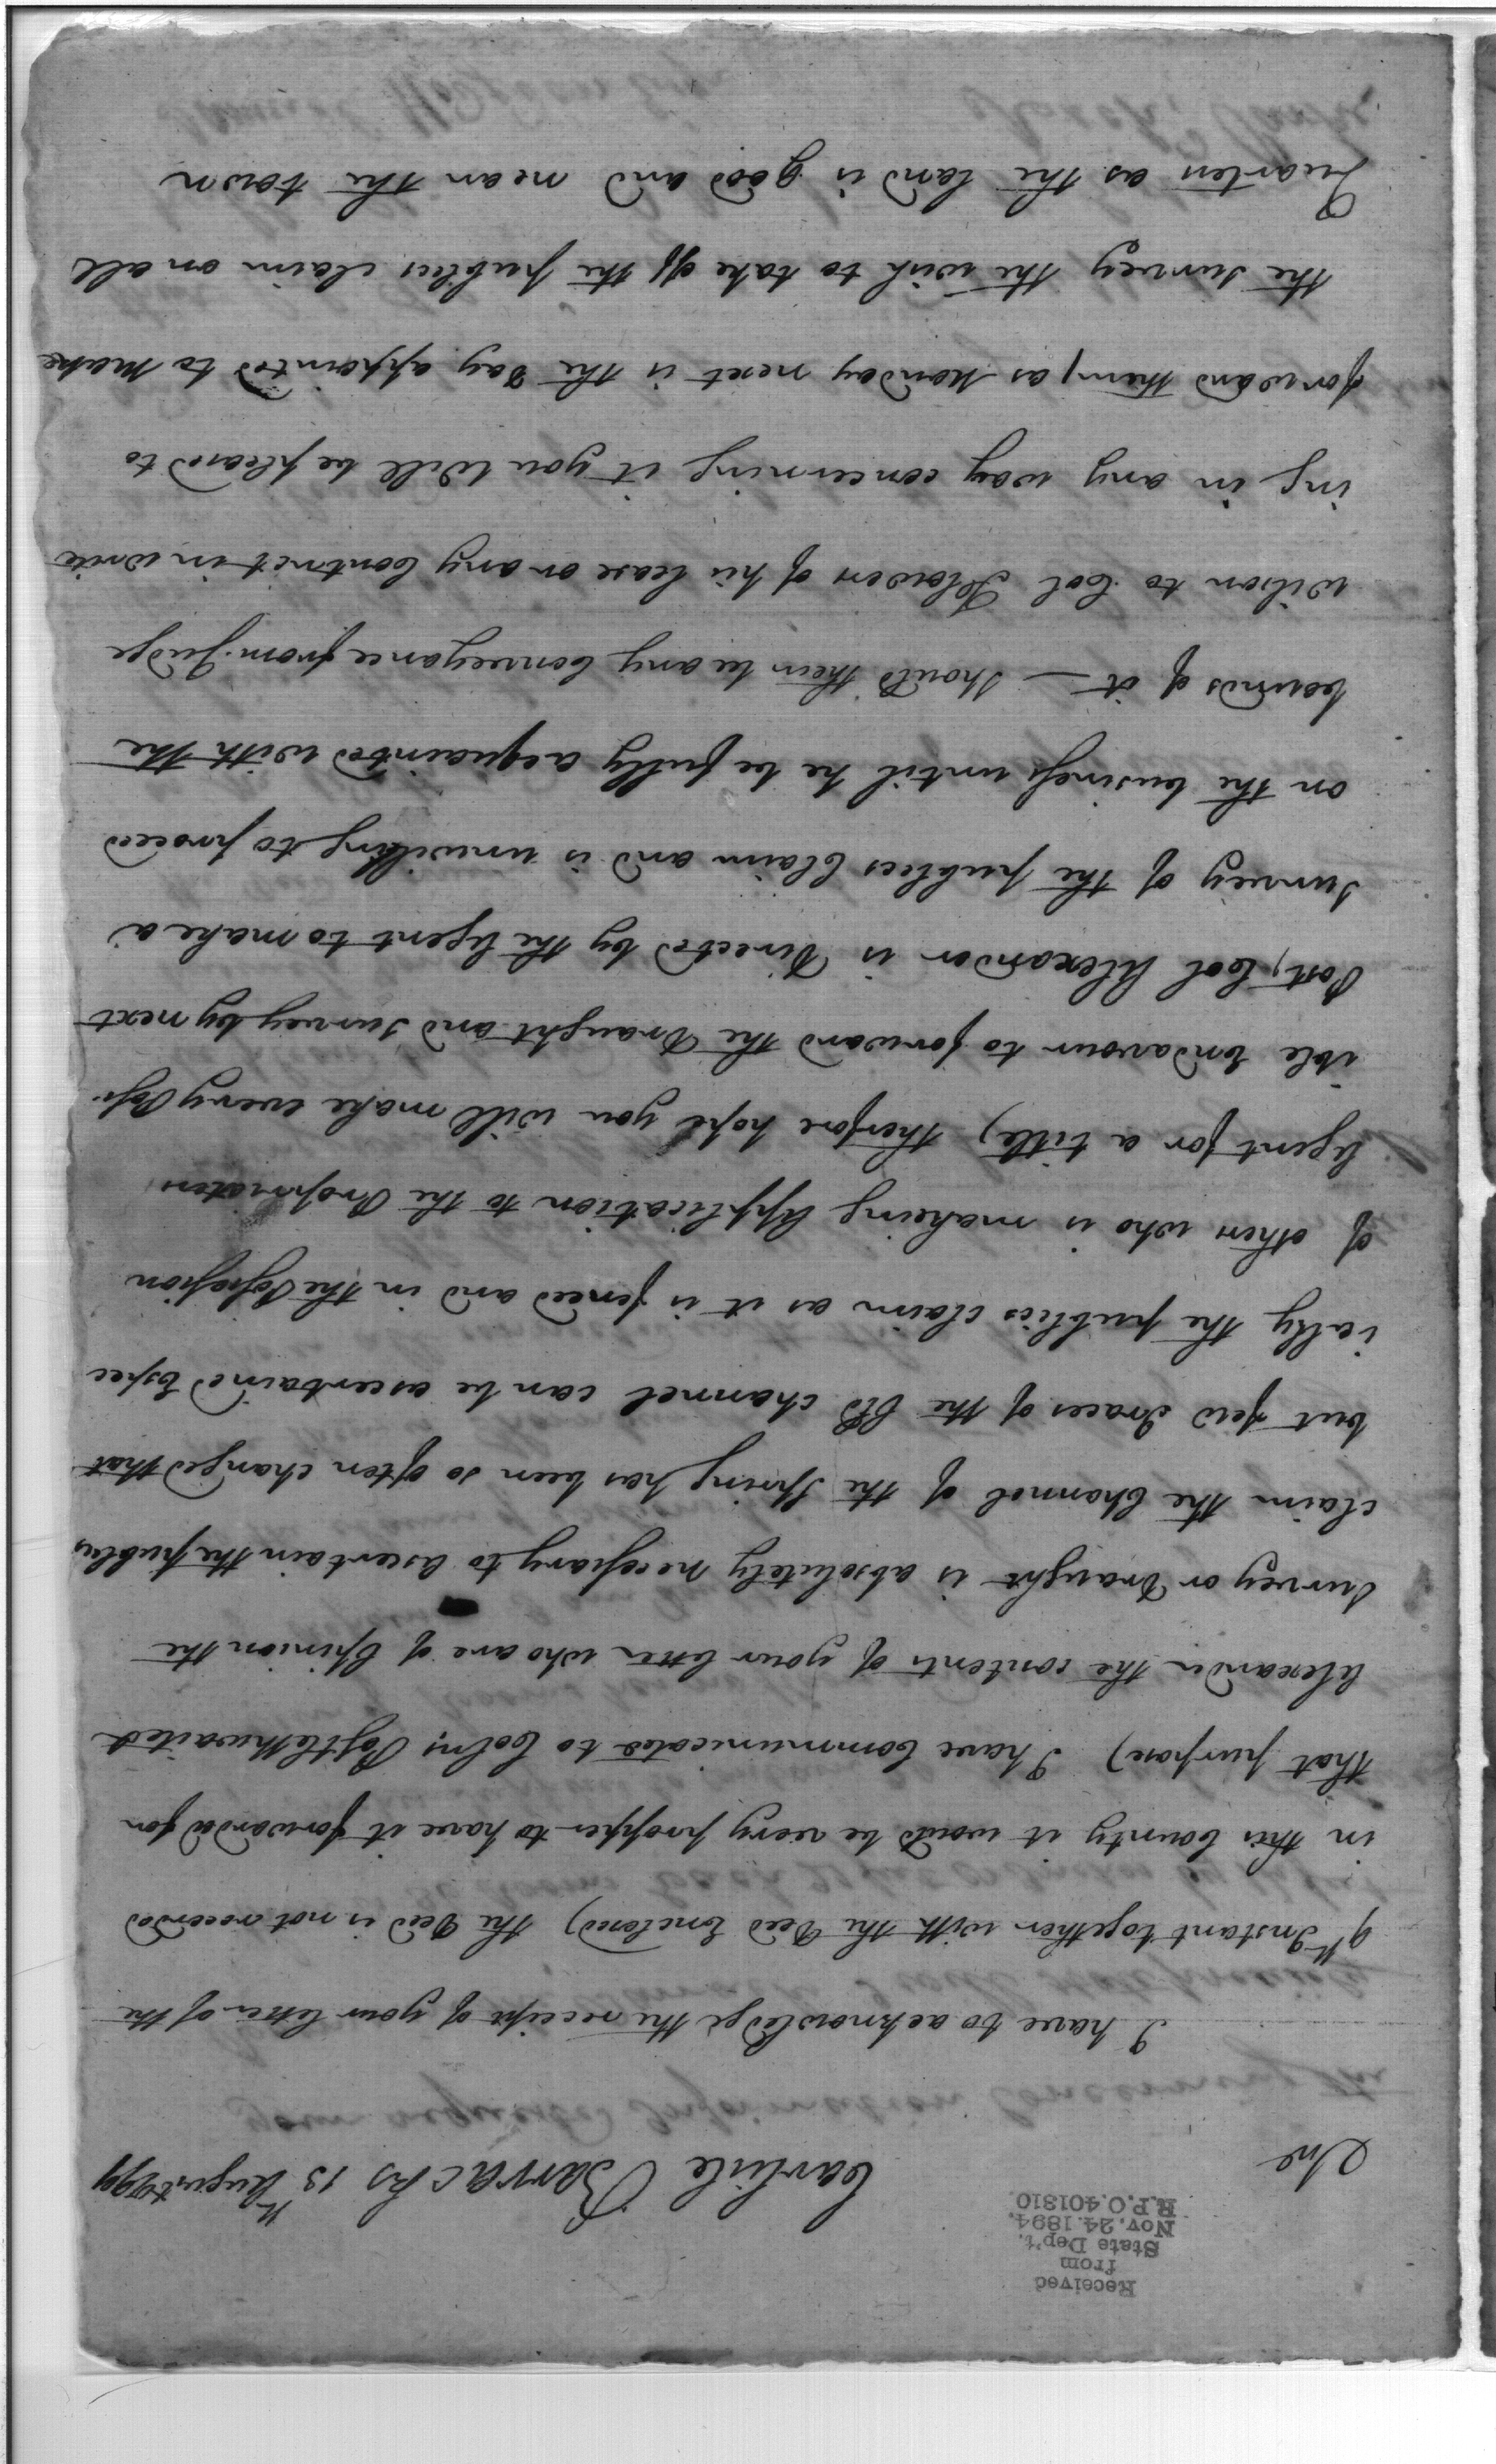 Received
from
State Dep't.
Nov. 24. 1894.
R.P.O. 401810.
Carlisle Barracks 13th August 1799
Sir
I have to acknowledge the receipt of your letter of the
9th Instant together with the Deed Enclosed) the Deed is not recorded
in this County it would be very propper to have it forwarded for
that purpose) I have Communicated to Colns Postlethwaite &
Alexander the contents of your letter who are of Opinion the
Survey or Draught is absolutely necessary to ascertain the publics
claim the Channel of the Spring has been so often changed that
but few Traces of the Old channel can be ascertained Espec
ially the publics claim as it is fenced and in the Possession
of others who is makeing Application to the Proprietors
Agent for a title) therefore hope you will make every Poss-
ible Endavour to forward the Draught and Survey by next
Post, Col Alexander is Directed by the Agent to make a
Survey of the publics Claim and is unwilling to proceed
on the business until he be fully acquainted with the
bounds of it — Should their be any Conveyance from Judge
Wilson to Col Blaine of his lease or any Contract in write
ing in any way concerning it you Will be pleased to
forward them, as Monday next is the Day appointed to Make
the Survey the wish to take off the publics claim on all
Quarters as the land is good and near the town